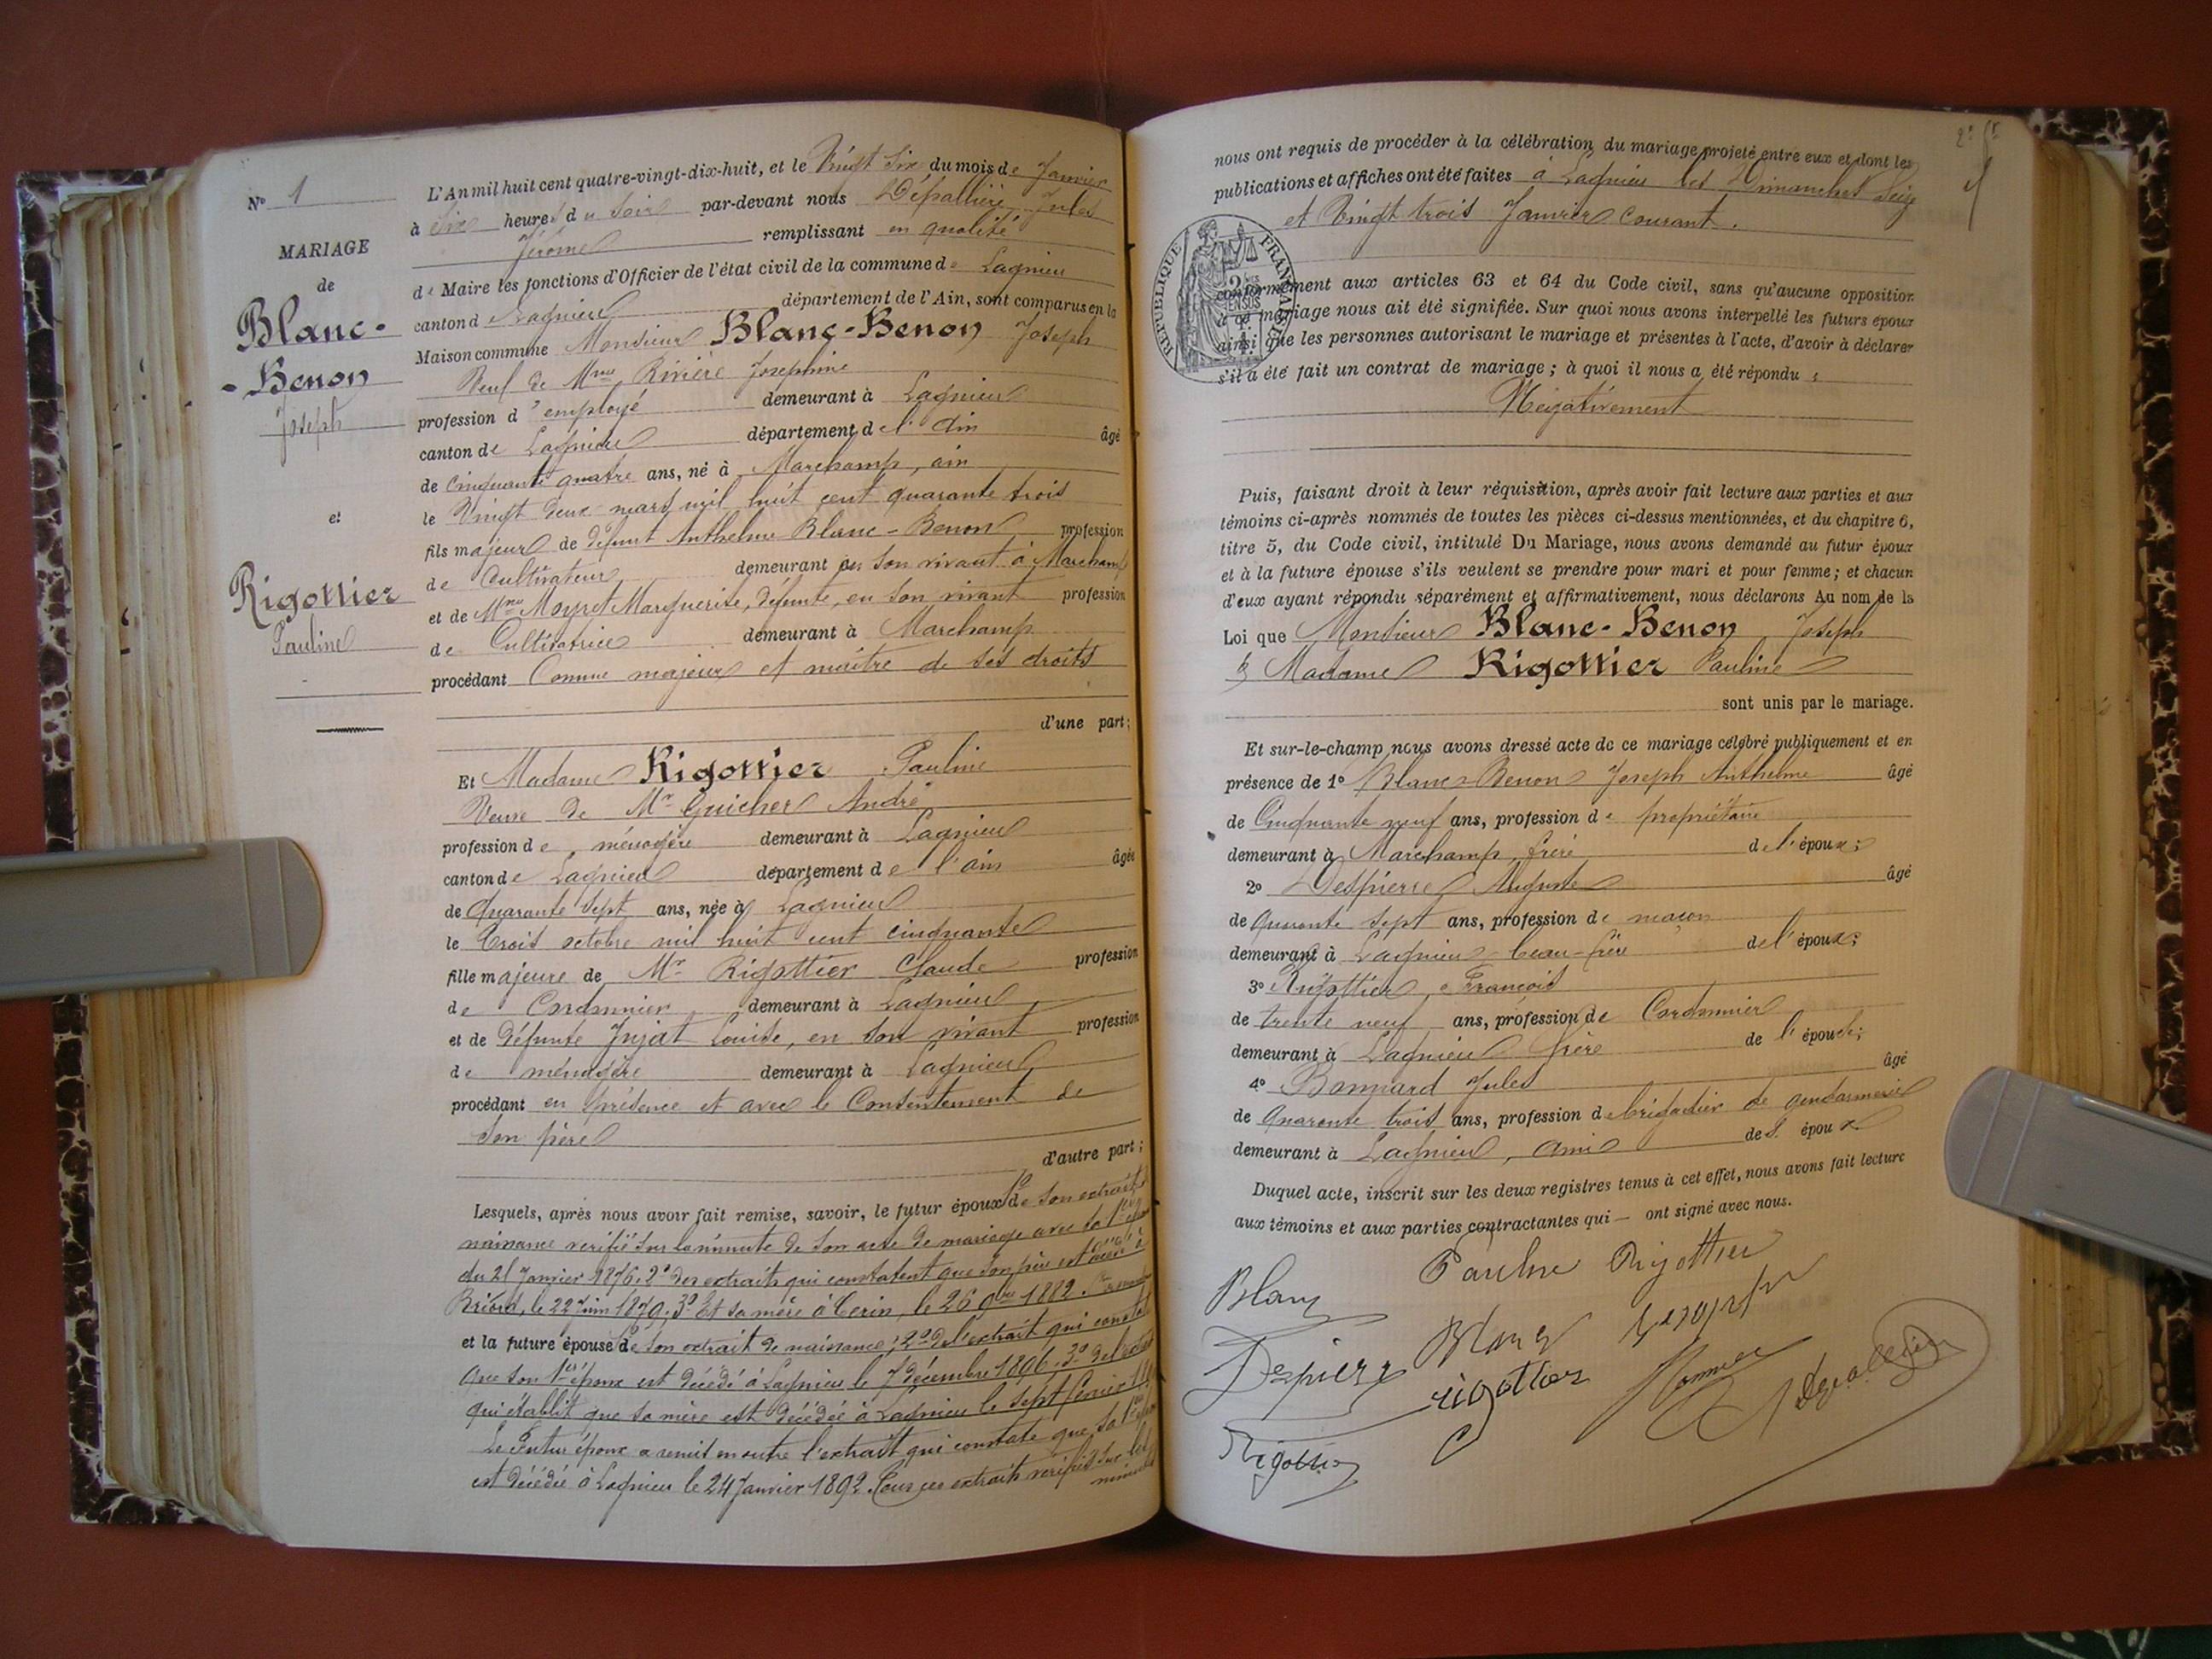 N° 1
MARIAGE
de
Blanc-
-Benon
Joseph
et
Rigottier
Pauline
L'An mil huit cent quatre-vingt-dix-huit, et le Vingt Six du mois de Janvier
à Six heures du Soir par-devant nous Dépallière Jules
Jérome remplissant en qualité
de Maire les fonctions d'Officier de l'état civil de la commune de Lagnieu
canton de Lagnieu département de l'Ain, sont comparus en la
Maison commune Monsieur Blanc-Benon Joseph
Veuf de Mme Rivière Josephine
profession d'employé demeurant à Lagnieu
canton de Lagnieu département de l'Ain âgé
de cinquante quatre ans, né à Marchamp, ain
le Vingt deux mars mil huit cent quarante trois
fils majeur de défunt Anthelme Blanc-Benon profession
de Cultivateur demeurant en son vivant à Marchamp
et de Mme Moyret Marguerite, défunte, en son vivant profession
de Cultivatrice demeurant à Marchamp
procédant Comme majeur et maître de ses droits
d'une part;
Et Madame Rigottier Pauline
Veuve de Mr Guicher André
profession de ménagère demeurant à Lagnieu
canton de Lagnieu département de l'ain âgée
de Quarante Sept ans, née à Lagnieu
le trois octobre mil huit cent cinquante
fille majeure de Mr Rigottier Claude profession
de Cordonnier demeurant à Lagnieu
et de défunte Jujat Louise, en son vivant profession
de ménagère demeurant à Lagnieu
procédant en présence et avec le Consentement de
son père
d'autre part;
Lesquels, après nous avoir fait remise, savoir, le futur époux 1° de son extrait de
naissance vérifié sur la minute de son acte de mariage avec sa 1ère
du 21 Janvier 1876. 2° des extraits qui constatent que son père est décédé à
Briord, le 22 Juin 1870. 3° Et sa mère à Cerin, le 26 1882.
et la future épouse 1° de son extrait de naissance; 2° de l'extrait qui constate
que son 1er époux est décédé à Lagnieu le 7 décembre 1896. 3° de l'extrait
qui établit que sa mère est décédée à Lagnieu le sept février
Le Futur époux a remis en outre l'extrait qui constate que sa 1ère
est décédée à Lagnieu le 24 Janvier 1892. Tous ces extraits vérifiés sur les
minutes
nous ont requis de procéder à la célébration du mariage projeté entre eux et dont les
publications et affiches ont été faites à Lagnieu les Dimanches Seize
et Vingt trois Janvier courant.
RÉPUBLIQUE FRANÇAISE
conformément aux articles 63 et 64 du Code civil, sans qu'aucune opposition
à ce mariage nous ait été signifiée. Sur quoi nous avons interpellé les futurs époux
ainsi que les personnes autorisant le mariage et présentes à l'acte, d'avoir à déclarer
s'il a été fait un contrat de mariage; à quoi il nous a été répondu :
Négativement
Puis, faisant droit à leur réquisition, après avoir fait lecture aux parties et aux
témoins ci-après nommés de toutes les pièces ci-dessus mentionnées, et du chapitre 6,
titre 5, du Code civil, intitulé Du Mariage, nous avons demandé au futur époux
et à la future épouse s'ils veulent se prendre pour mari et pour femme; et chacun
d'eux ayant répondu séparément et affirmativement, nous déclarons Au nom de la
Loi que Monsieur Blanc-Benon Joseph
& Madame Rigottier Pauline
sont unis par le mariage.
Et sur-le-champ nous avons dressé acte de ce mariage célébré publiquement et en
présence de 1° Blanc-Benon Joseph Anthelme âgé
de Cinquante neuf ans, profession de propriétaire
demeurant à Marchamp frère de l'époux;
2° Despierre Auguste âgé
de quarante sept ans, profession de maçon
demeurant à Lagnieu beau-frère de l'époux;
3° Rigottier François
de trente neuf ans, profession de Cordonnier
demeurant à Lagnieu frère de l'épouse;
4° Bonnard Jules âgé
de Quarante trois ans, profession de brigadier de gendarmerie
demeurant à Lagnieu, ami des époux
Duquel acte, inscrit sur les deux registres tenus à cet effet, nous avons fait lecture
aux témoins et aux parties contractantes qui — ont signé avec nous.
Pauline Rigottier
Blanc
Blanc
Despierre
rigottier
Rigottier